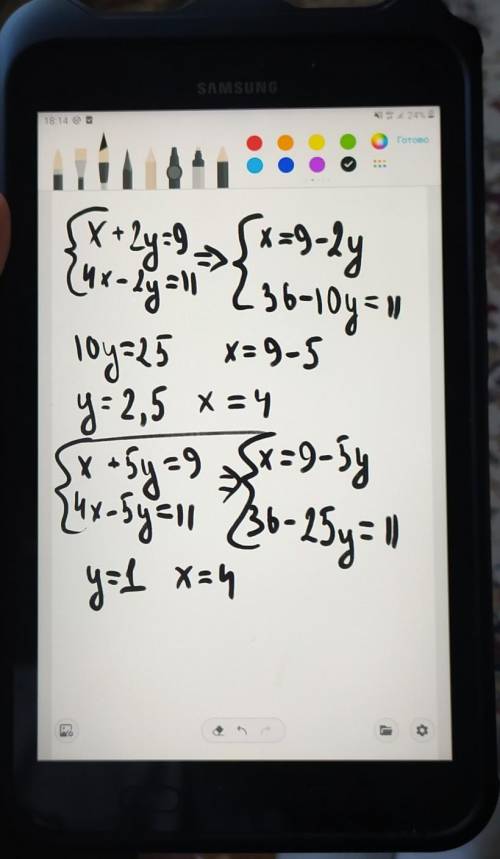 SAMSUNG
18:14 24%
Готово
{x + 2y = 9 ⇒ {x = 9 - 2y
{4x - 2y = 11 {36 - 10y = 11
10y = 25 x = 9 - 5
y = 2,5 x = 4
{x + 5y = 9 ⇒ {x = 9 - 5y
{4x - 5y = 11 {36 - 25y = 11
y = 1 x = 4